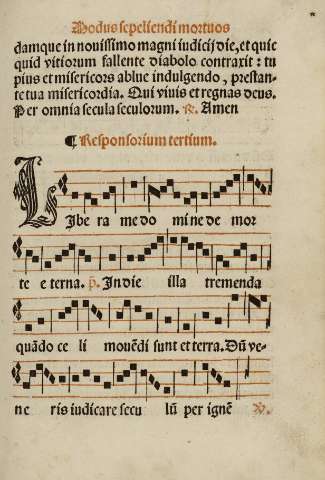 Modus sepeliendi mortuos
damque in nouissimo magni iudicij die, et quic
quid vitiorum fallente diabolo contraxit: tu
pius et misericors ablue indulgendo, prestan-
te tua misericordia. Qui viuis et regnas deus.
Per omnia secula seculorum. ℟. Amen
¶ Responsorium tertium.
LIbe ra me do mi ne de mor
te e terna. ℣. In die illa tremenda
quãdo ce li mouẽdi sunt et terra. Dũ ve-
ne ris iudicare secu lũ per ignẽ